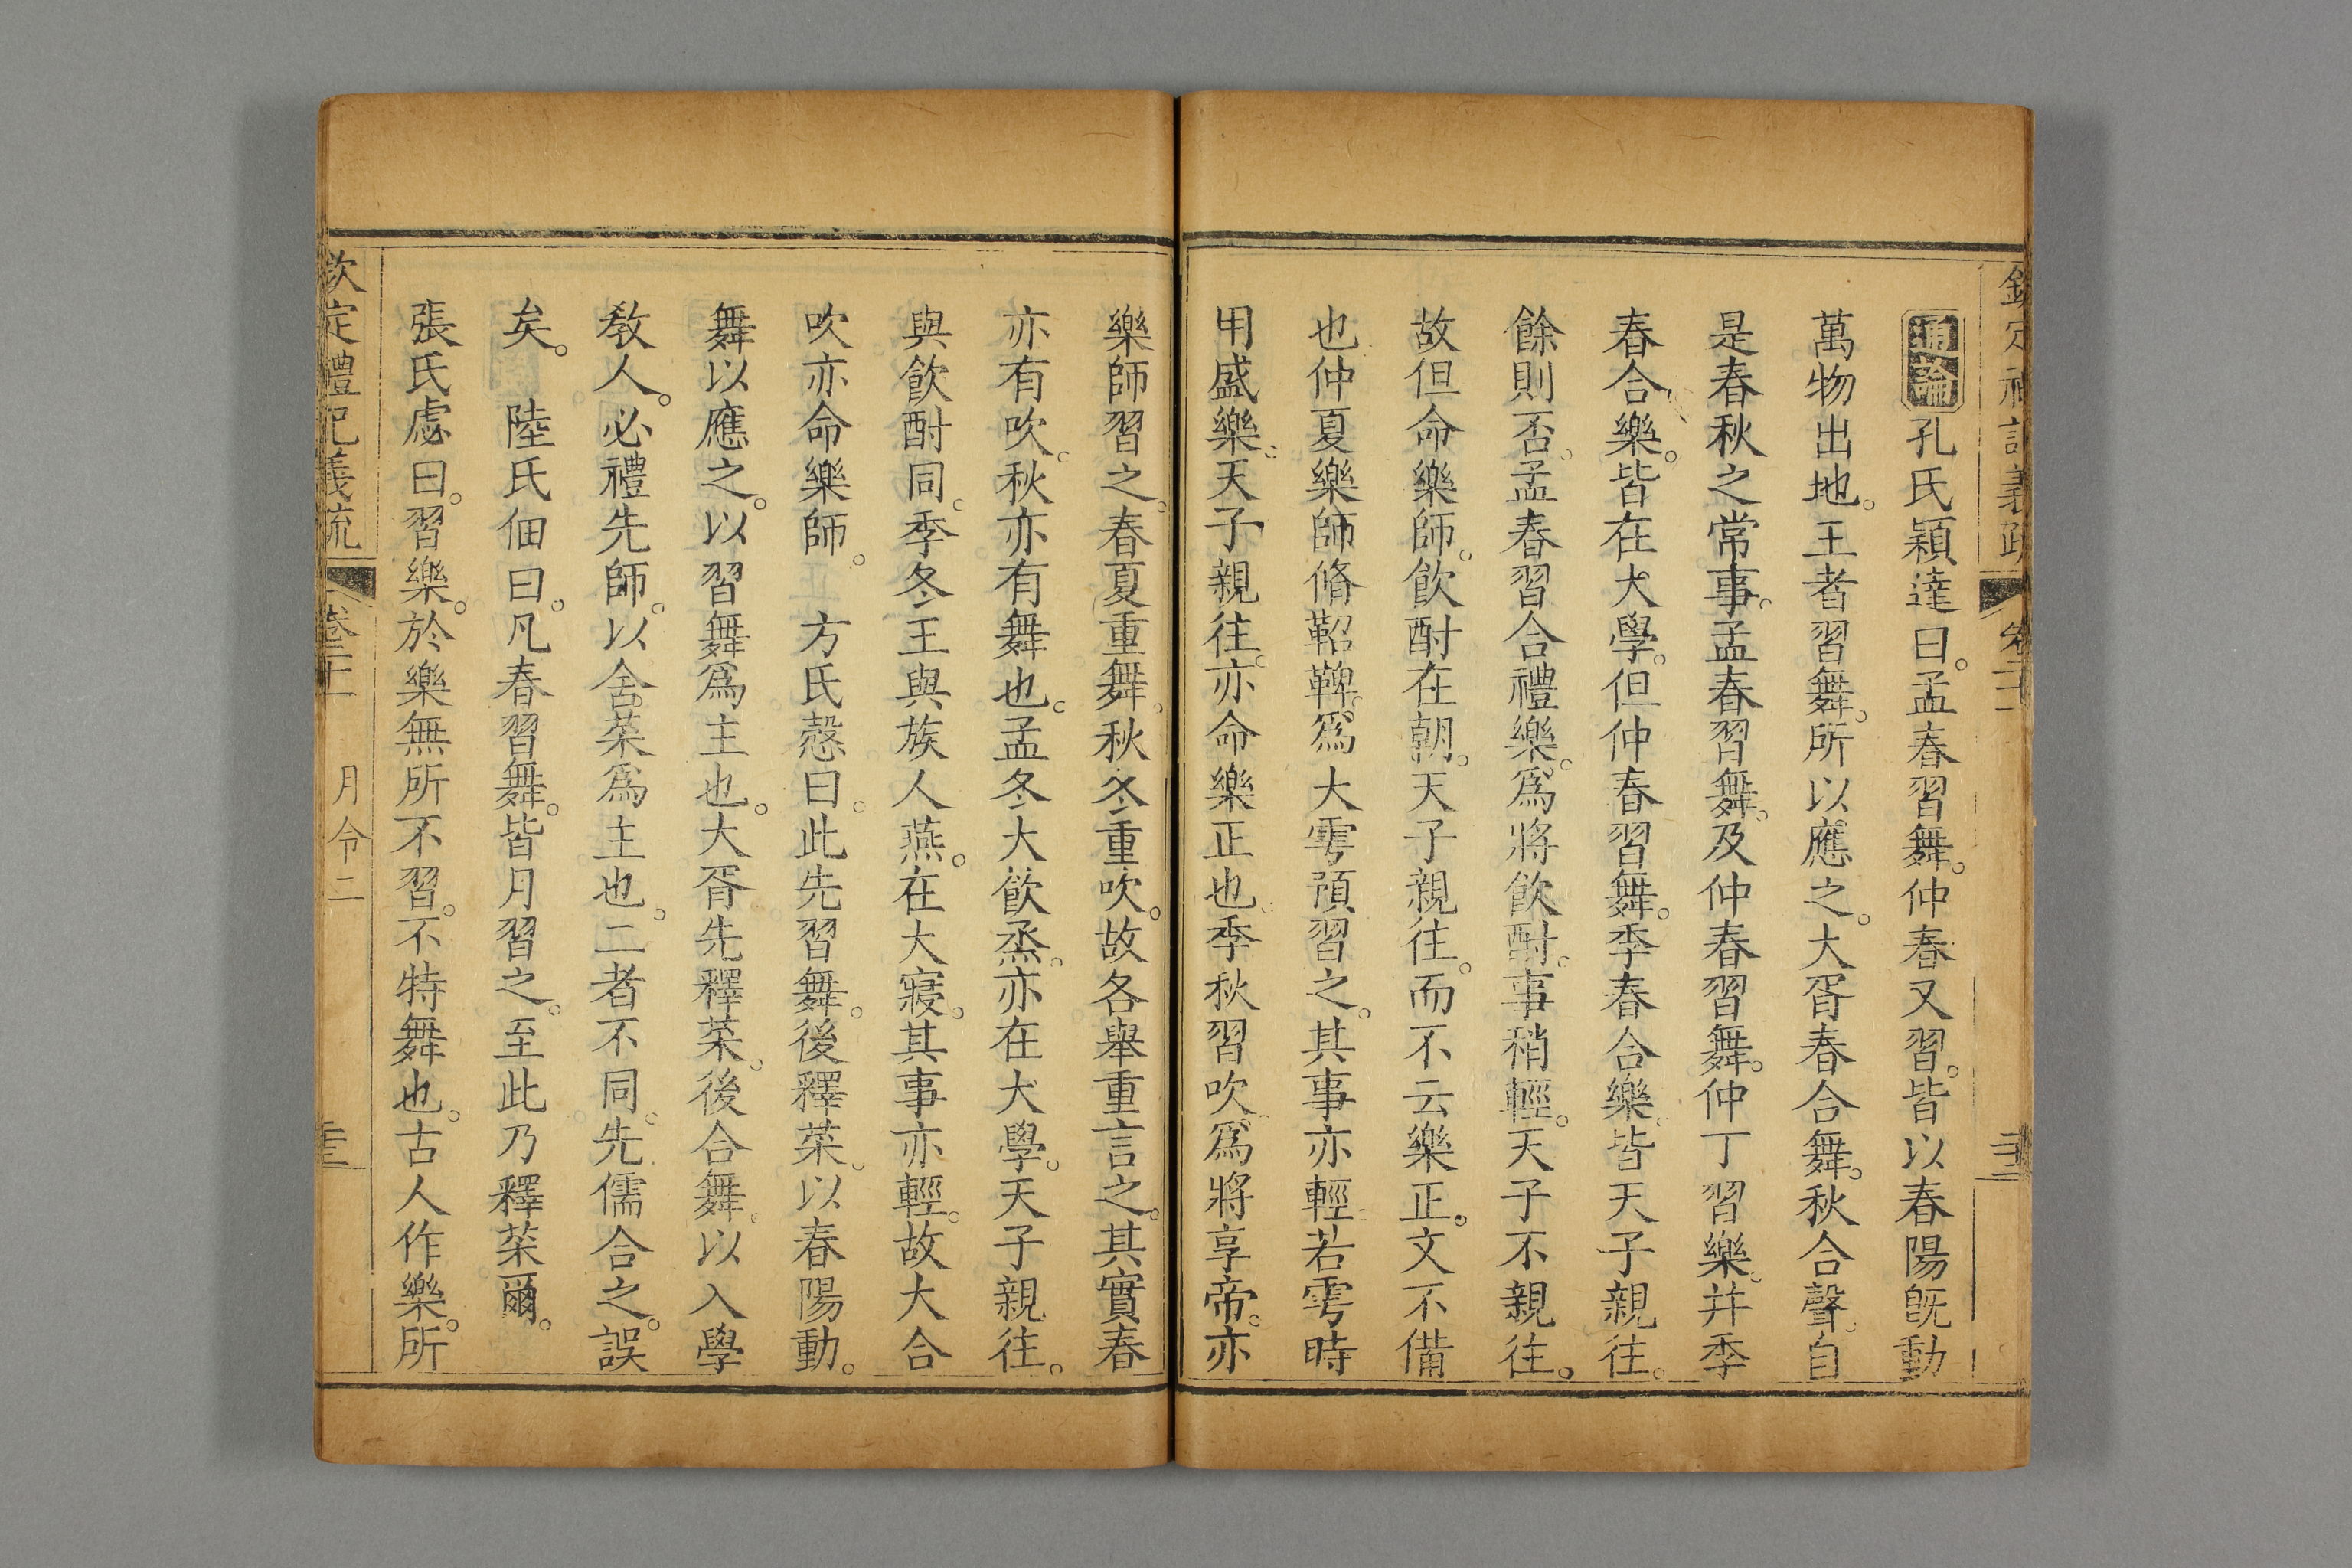 通論孔氏穎達曰。孟春習舞。仲春又習。皆以春陽旣動
萬物出地。王者習舞。所以應之。大胥春合舞。秋合聲。自
是春秋之常事。孟春習舞。及仲春習舞。仲丁習樂。幷季
春合樂。皆在大學。但仲春習舞。季春合樂。皆天子親往。
餘則否。孟春習合禮樂。爲將飮酎。事稍輕。天子不親往。
故但命樂師。飮酎在朝。天子親往。而不云樂正。文不備
也仲夏樂師脩鞀鞞。爲大雩預習之。其事亦輕。若雩時
用盛樂。天子親往。亦命樂正也。季秋習吹。爲將享帝。亦
樂師習之。春夏重舞。秋冬重吹。故各舉重言之。其實春
亦有吹。秋亦有舞也。孟冬大飮烝。亦在大學。天子親往。
與飮酎同。季冬王與族人燕。在大寢。其事亦輕。故大合
吹亦命樂師。 方氏慤曰。此先習舞。後釋菜。以春陽動。
舞以應之。以習舞爲主也。大胥先釋菜。後合舞。以入學
敎人。必禮先師。以舍菜爲主也。二者不同。先儒合之。誤
矣。 陸氏佃曰。凡春習舞。皆月習之。至此乃釋菜爾。
張氏慮曰。習樂。於樂無所不習。不特舞也。古人作樂。所
欽定禮記義疏 卷二十一 月令二